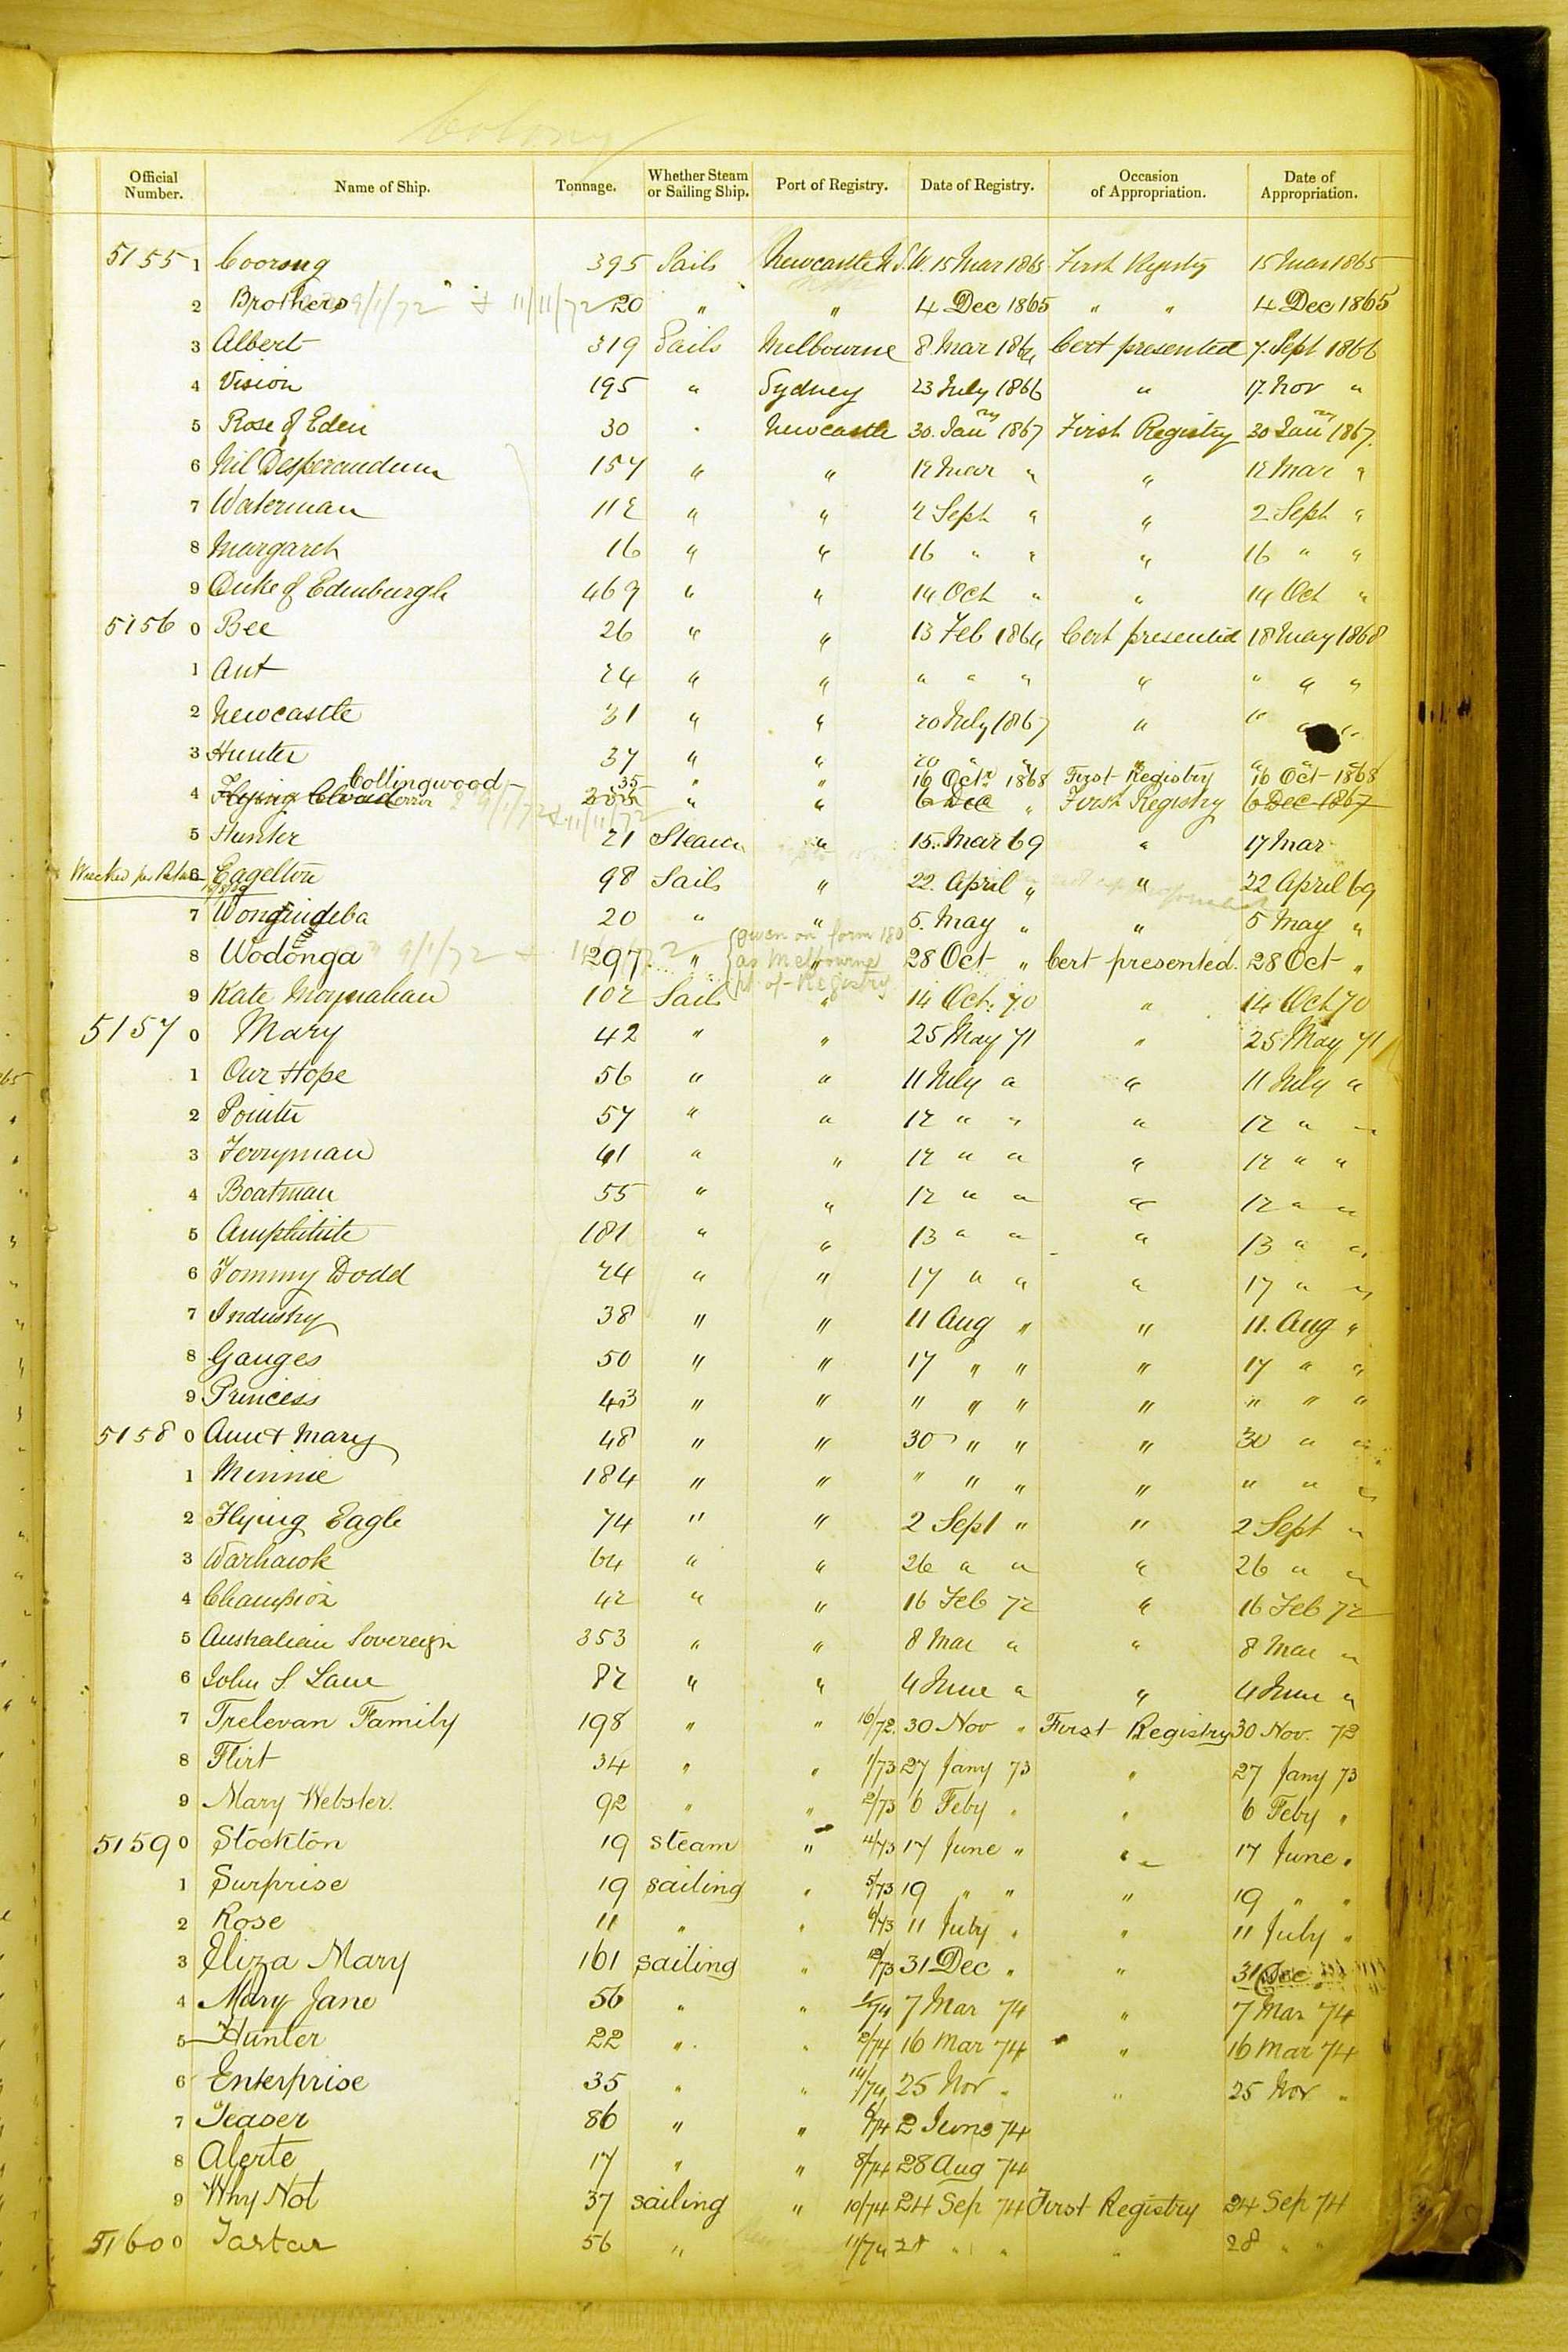 Colony
Official Number. Name of Ship. Tonnage. Whether Steam or Sailing Ship. Port of Registry. Date of Registry. Occasion of Appropriation. Date of Appropriation.
5155 1 Coorong 395 Sails Newcastle N.S.W. 15 Mar 1865 First Registry 15 Mar 1865
2 Brothers 9/1/72 & 11/11/72 20 " " 4 Dec 1865 " " 4 Dec 1865
3 Albert 319 Sails Melbourne 8 Mar 1864 Cert presented 7. Sept 1866
4 Vision 195 " Sydney 23 July 1866 " 17. Nov "
5 Rose of Eden 30 " Newcastle 30. Jany 1867 First Registry 30 Jany 1867.
6 Nil Desperandum 157 " " 12 Mar " " 12 Mar "
7 Waterman 112 " " 2 Sept " " 2 Sept "
8 Margaret 16 " " 16 " " " 16 " "
9 Duke of Edinburgh 469 " " 14 Oct " " 14 Oct "
5156 0 Bee 26 " " 13 Feb 1864 Cert presented 18 May 1868
1 Ant 24 " " " " " " " " "
2 Newcastle 31 " " 20 July 1867 " " " "
3 Hunter 37 " " 20 " " " " " "
Collingwood 35 " " 16 Octr 1868 First Registry 16 Oct 1868
4 Flying Cloud error 9/1/72 & 11/11/72 " " 6 Dec " First Registry 6 Dec 1867
5 Hunter 21 Steam " 15. Mar 69 " 17 Mar
Wrecked per Return 6 Eagelton 98 Sails " 22. April " " 22 April 69
7 20 " " 5. May " " 5 May "
8 Wodonga 9/1/72 & 297 " " {given on form 180 as Melbourne pt of Registry 28 Oct " Cert presented. 28 Oct "
9 Kate Moynahan 102 Sail " 14 Oct. 70 " 14 Oct 70
5157 0 Mary 42 " " 25 May 71 " 25 May 71
1 Our Hope 56 " " 11 July " " 11 July "
2 Pointer 57 " " 12 " " " 12 " "
3 Ferryman 61 " " 12 " " " 12 " "
4 Boatman 55 " " 12 " " " 12 " "
5 Amphitrite 181 " " 13 " " " 13 " "
6 Tommy Dodd 24 " " 17 " " " 17 " "
7 Industry 38 " " 11 Aug " " 11. Aug "
8 Ganges 50 " " 17 " " " 17 " "
9 Princess 43 " " " " " " " " "
5158 0 Aunt Mary 48 " " 30 " " " 30 " "
1 Minnie 184 " " " " " " " " "
2 Flying Eagle 74 " " 2 Sept " " 2 Sept "
3 Warhawk 64 " " 26 " " " 26 " "
4 Champion 42 " " 16 Feb 72 " 16 Feb 72
5 Australian Sovereign 353 " " 8 Mar " " 8 Mar "
6 John S Lane 82 " " 4 June " " 4 June "
7 Trelevan Family 198 " " 16/72. 30 Nov " First Registry 30 Nov. 72
8 Flirt 34 " " 1/73 27 Jany 73 " 27 Jany 73
9 Mary Webster. 92 " " 2/73 6 Feby " " 6 Feby "
5159 0 Stockton 19 steam " 4/73 17 June " " 17 June "
1 Surprise 19 sailing " 5/73 19 " " " 19 " "
2 Rose 11 " " 6/73 11 July " " 11 July "
3 Eliza Mary 161 sailing " 12/73 31 Dec " " 31 Dec "
4 Mary Jane 56 " " 1/74 7 Mar 74 " 7 Mar 74
5 Hunter 22 " " 2/74 16 Mar 74 " 16 Mar 74
6 Enterprise 35 " " 14/74 25 Nov " " 25 Nov "
7 Teaser 86 " " 6/74 2 June 74
8 Alerte 17 " " 8/74 28 Aug 74
9 Why Not 37 sailing " 10/74 24 Sep 74 First Registry 24 Sep 74
5160 0 Tartar 56 " " 11/74 28 " " " 28 " "